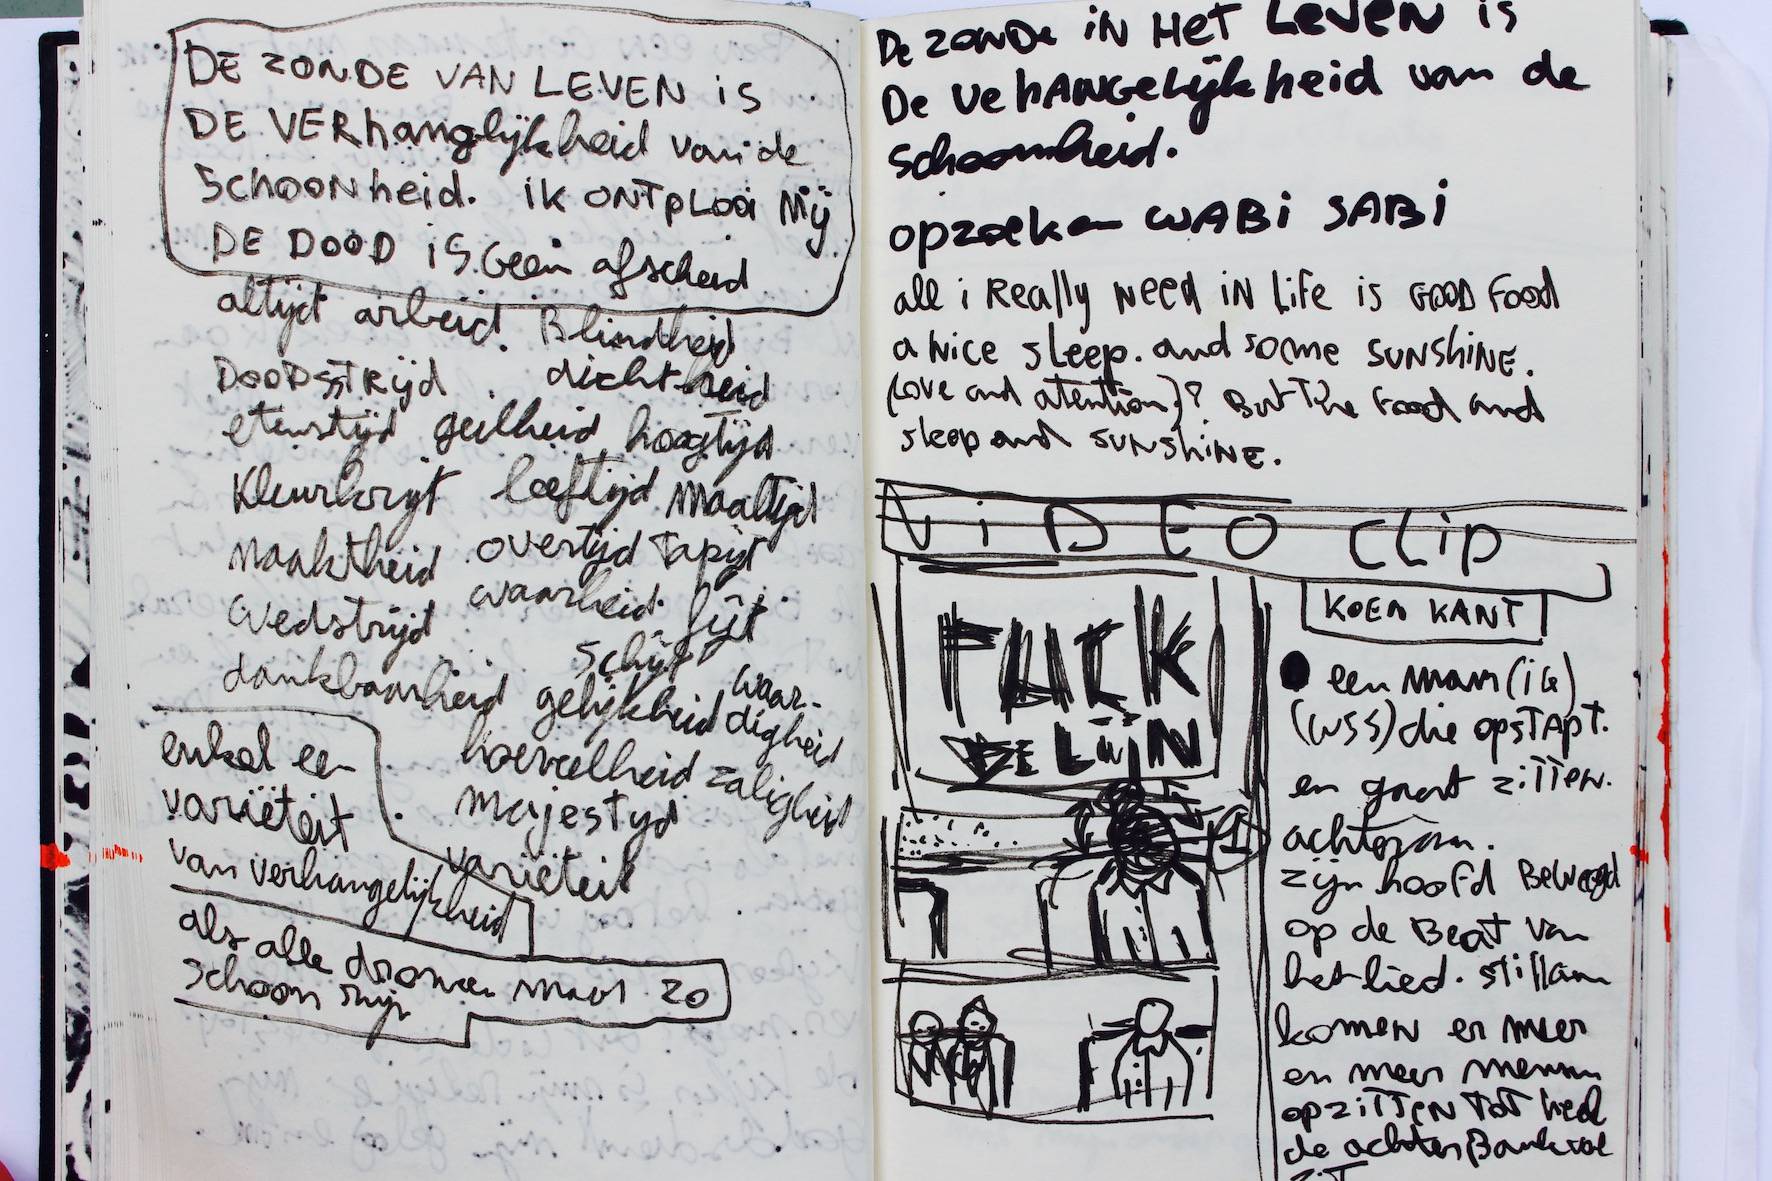 DE ZONDE VAN LEVEN iS
DE VERhanglijkheid van de
SCHOONheid. iK ONTPLOOi Mij
DE DOOD iS Geen afscheid
altijd arbeid. Blindheid
DOODSSTRijD dichtheid
etenstijd geilheid hoogtijd
kleurkrijt leeftijd maaltijd
naaktheid overtijd tapijt
wedstrijd waarheid. fijt
schijt
dankbaarheid gelijkheid waar-
digheid
hoeveelheid zaligheid
majestijd
variëteit
enkel een
variëteit
van verhangelijkheid
als alle dromen maar zo
schoon zijn
De ZONDe iN HeT LeVeN is
De VeHANGeLijkheid van de
schoonheid.
opzoeken WABi SABi
all i Really Need iN Life is GOOD Food
a Nice sleep. and some SUNShiNE.
(Love and atention)? But The Food and
sleep and SUNShiNE.
ViDEO CLip
FUCK
DE LiJN
KOEN KANT
een man (ik)
(WSS) die OPSTAPT.
en gaat ziTTeN.
achteraan.
zijn hoofd Beweegd
op de Beat van
het lied. stillaan
komen er meer
en meer mensen
opziTTeN ToT heel
de achterBank vol
ziT
1